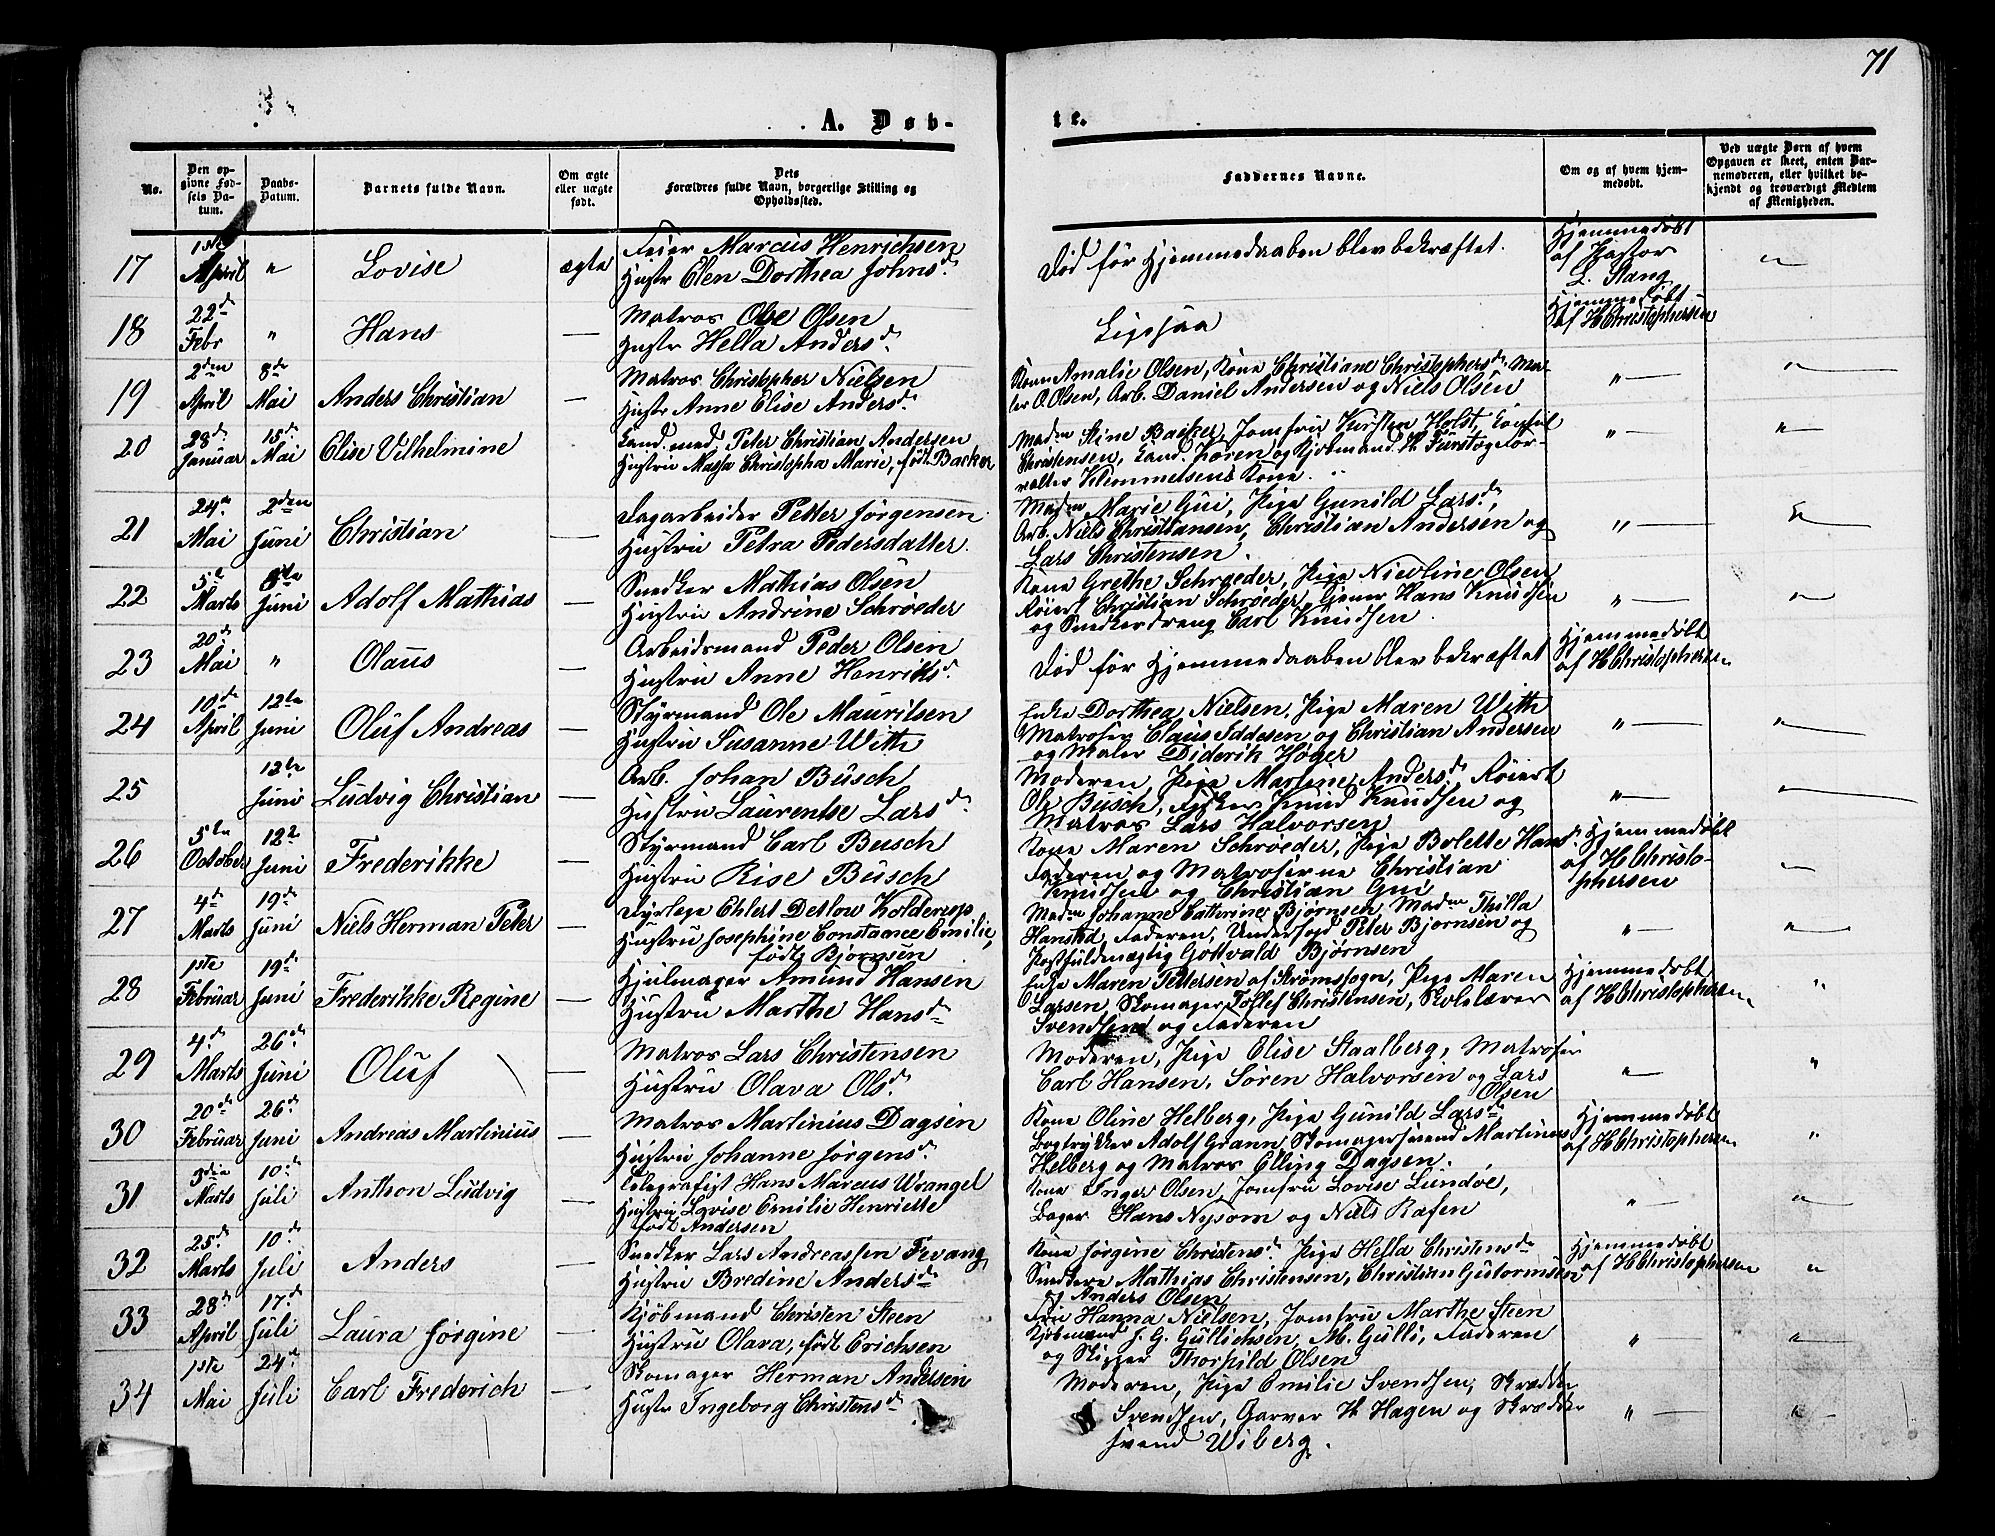 71
A. Døb-
te.
No.
Den opgivne Fødsels Datum.
Daabs-Datum.
Barnets fulde Navn.
Om ægte eller uægte født.
Dets Forældres fulde Navn, borgerlige Stilling og Opholdssted.
Faddernes Navne.
Om og af hvem hjemmedøbt.
Ved uægte Børn af hvem Opgaven er skeet, enten Barnemoderen, eller hvilket bekjendt og troværdigt Medlem af Menigheden.
17 1ste April " Lovise ægte
Feier Marcus Henrichsen
Hustr Elen Dorthea Johnsd.
Død før Hjemmedaaben blev bekræftet.
Hjemmedøbt
af Pastor
L. Stang
"
18 22d Febr " Hans —
Matros Ole Olsen
Hustr Hella Andersd.
Ligesaa
Hjemmedøbt
af HChristophersen
19 2den April 8de Mai Anders Christian —
Matros Christopher Nielsen
Hustr Anne Elise Andersd.
Kone Amalie Olsen, Kone Christiane Christophersd. Ma-
ler O. Olsen, Arb. Daniel Andersen og Niels Olsen
" — " —
20 28d. Januar 15d. Mai Elise Vilhelmine
Cand. med. Peter Christian Andersen
Hustru Massa Christopha Marie, født Backer
Madm Stine Backer, Jomfru Kirsten Holst, Consul
Christensen, Cand. Kæren og Kjøbmand H. Furst og For-
valter Klemmetsens Kone.
" — " —
21 24de Mai 2den Juni Christian —
Dagarbeider Petter Jørgensen
Hustru Petra Pedersdatter.
Madm Marie Gui, Pige Gunild Larsd.,
Arb. Niels Christiansen, Christian Andersen og
Lars Christensen.
" — " —
22 5te Marts 8de Juni Adolf Mathias —
Snedker Mathias Olsen
Hustru Andrine Schrøeder
Kone Grethe Schroeder, Pige Nicoline Olsen
Røiert Christian Schrøeder, Gjener Hans Knudsen
og Snedkerdreng Carl Knudsen.
" — " —
23 20d. Mai " Olaus —
Arbeidsmand Peder Olsen
Hustru Anne Henriksd.
Død før Hjemmedaaben blev bekræftet
Hjemmedøbt
af HChristophersen
24 10de April 12te Juni Oluf Andreas —
Styrmand Ole Mauritsen
Hustru Susanne With
Enke Dorthea Nielsen, Pige Maren With
Matroser Claus Iddesen og Christian Andersen
og Maler Diderik Høger
" — " —
25 12te Juni Ludvig Christian —
Arb. Johan Busch
Hustru Laurentse Larsd.
Moderen, Pige Martene Andersd. Røiert
Ole Busch, Fisker Knud Knudsen og
Matros Lars Halvorsen
" — " —
26 5te October 12te Juni Frederikke —
Styrmand Carl Busch
Hustru Rise Busch
Kone Maren Schrøeder, Pige Bolette Hansd.
Faderen og Matroserne Christian
Knudsen og Christian Gui
Hjemmedøbt
af HChristo-
phersen
" —
27 4de Marts 19de Juni Niels Herman Peter —
Dyrlæge Ehlert Detlow Kolderup
Hustru Josephine Constance Emilie,
født Bjørnsen
Madm Johanne Cathrine Bjørnsen, Madm Thilla
Hansted, Faderen, Underfogd Peter Bjørnsen og
Postfuldmægtig Gottvald Bjørnsen
" — " —
28 1ste Februar 19de Juni Frederikke Regine —
Hjulmager Amund Hansen
Hustru Marthe Hansd.
Enke Maren Pettersen af Strømssogn, Pige Maren
Larsen, Skomager Tollef Christensen, Skolelærer
Svendsen og Faderen
Hjemmedøbt
af HChristophersen
"
29 4de Marts 26de Juni Oluf —
Matros Lars Christensen
Hustru Olava Olsd.
Moderen, Pige Elise Staalberg, Matroser
Carl Hansen, Søren Halvorsen og Lars
Olsen
" — "
30 20de Februar 26de Juni Andreas Martinius —
Matros Martinius Dagsen
Hustru Johanne Jørgensd.
Kone Oline Helberg, Pige Gunild Larsd.
Bogtrykker Adolf Grann, Skomagersvend Martinus
Helberg og Matros Elling Dagsen.
Hjemmedøbt
af HChristophersen
"
31 3die Marts 10de Juli Anthon Ludvig —
Telegrafist Hans Marcus Wrangel
Hustru Lovise Emilie Henriette
født Andersen
Kone Inger Olsen, Jomfru Lovise Lundøe,
Bager Hans Nysom og Niels Rafen
" — " —
32 25de Marts 10de Juli Anders —
Snedker Lars Andreassen Fevang
Hustru Bredine Andersd.
Kone Jørgine Christensd. Pige Hella Christensd.
Snedkere Mathias Christensen, Christian Gutormsen
og Anders Olsen
Hjemmedøbt
af HChristophersen
"
33 28de April 17de Juli Laura Jørgine —
Kjøbmand Christen Steen
Hustru Olava, født Erichsen
Fru Hanna Nielsen, Jomfru Marthe Steen
Kjøbmand J. G. Gullichsen, M. Gulli, Faderen
og Skipper Thorsild Olsen
" — " —
34 1ste Mai 24de Juli Carl Frederich —
Skomager Herman Andersen
Hustr Ingeborg Christensd.
Moderen, Pige Emilie Svendsen, Skrædder
Svendsen, Garver H. Hagen og Skrædder
svend Wiberg.
" — " —